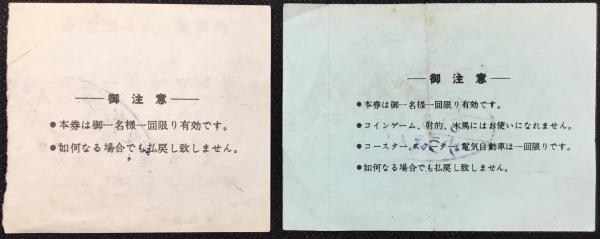 ── 御 注 意 ──
●本券は御一名様一回限り有効です。
●如何なる場合でも払戻し致しません。
── 御 注 意 ──
●本券は御一名様一回限り有効です。
●コインゲーム、射的、木馬にはお使いになれません。
●コースター、スクーター、電気自動車は一回限りです。
●如何なる場合でも払戻し致しません。